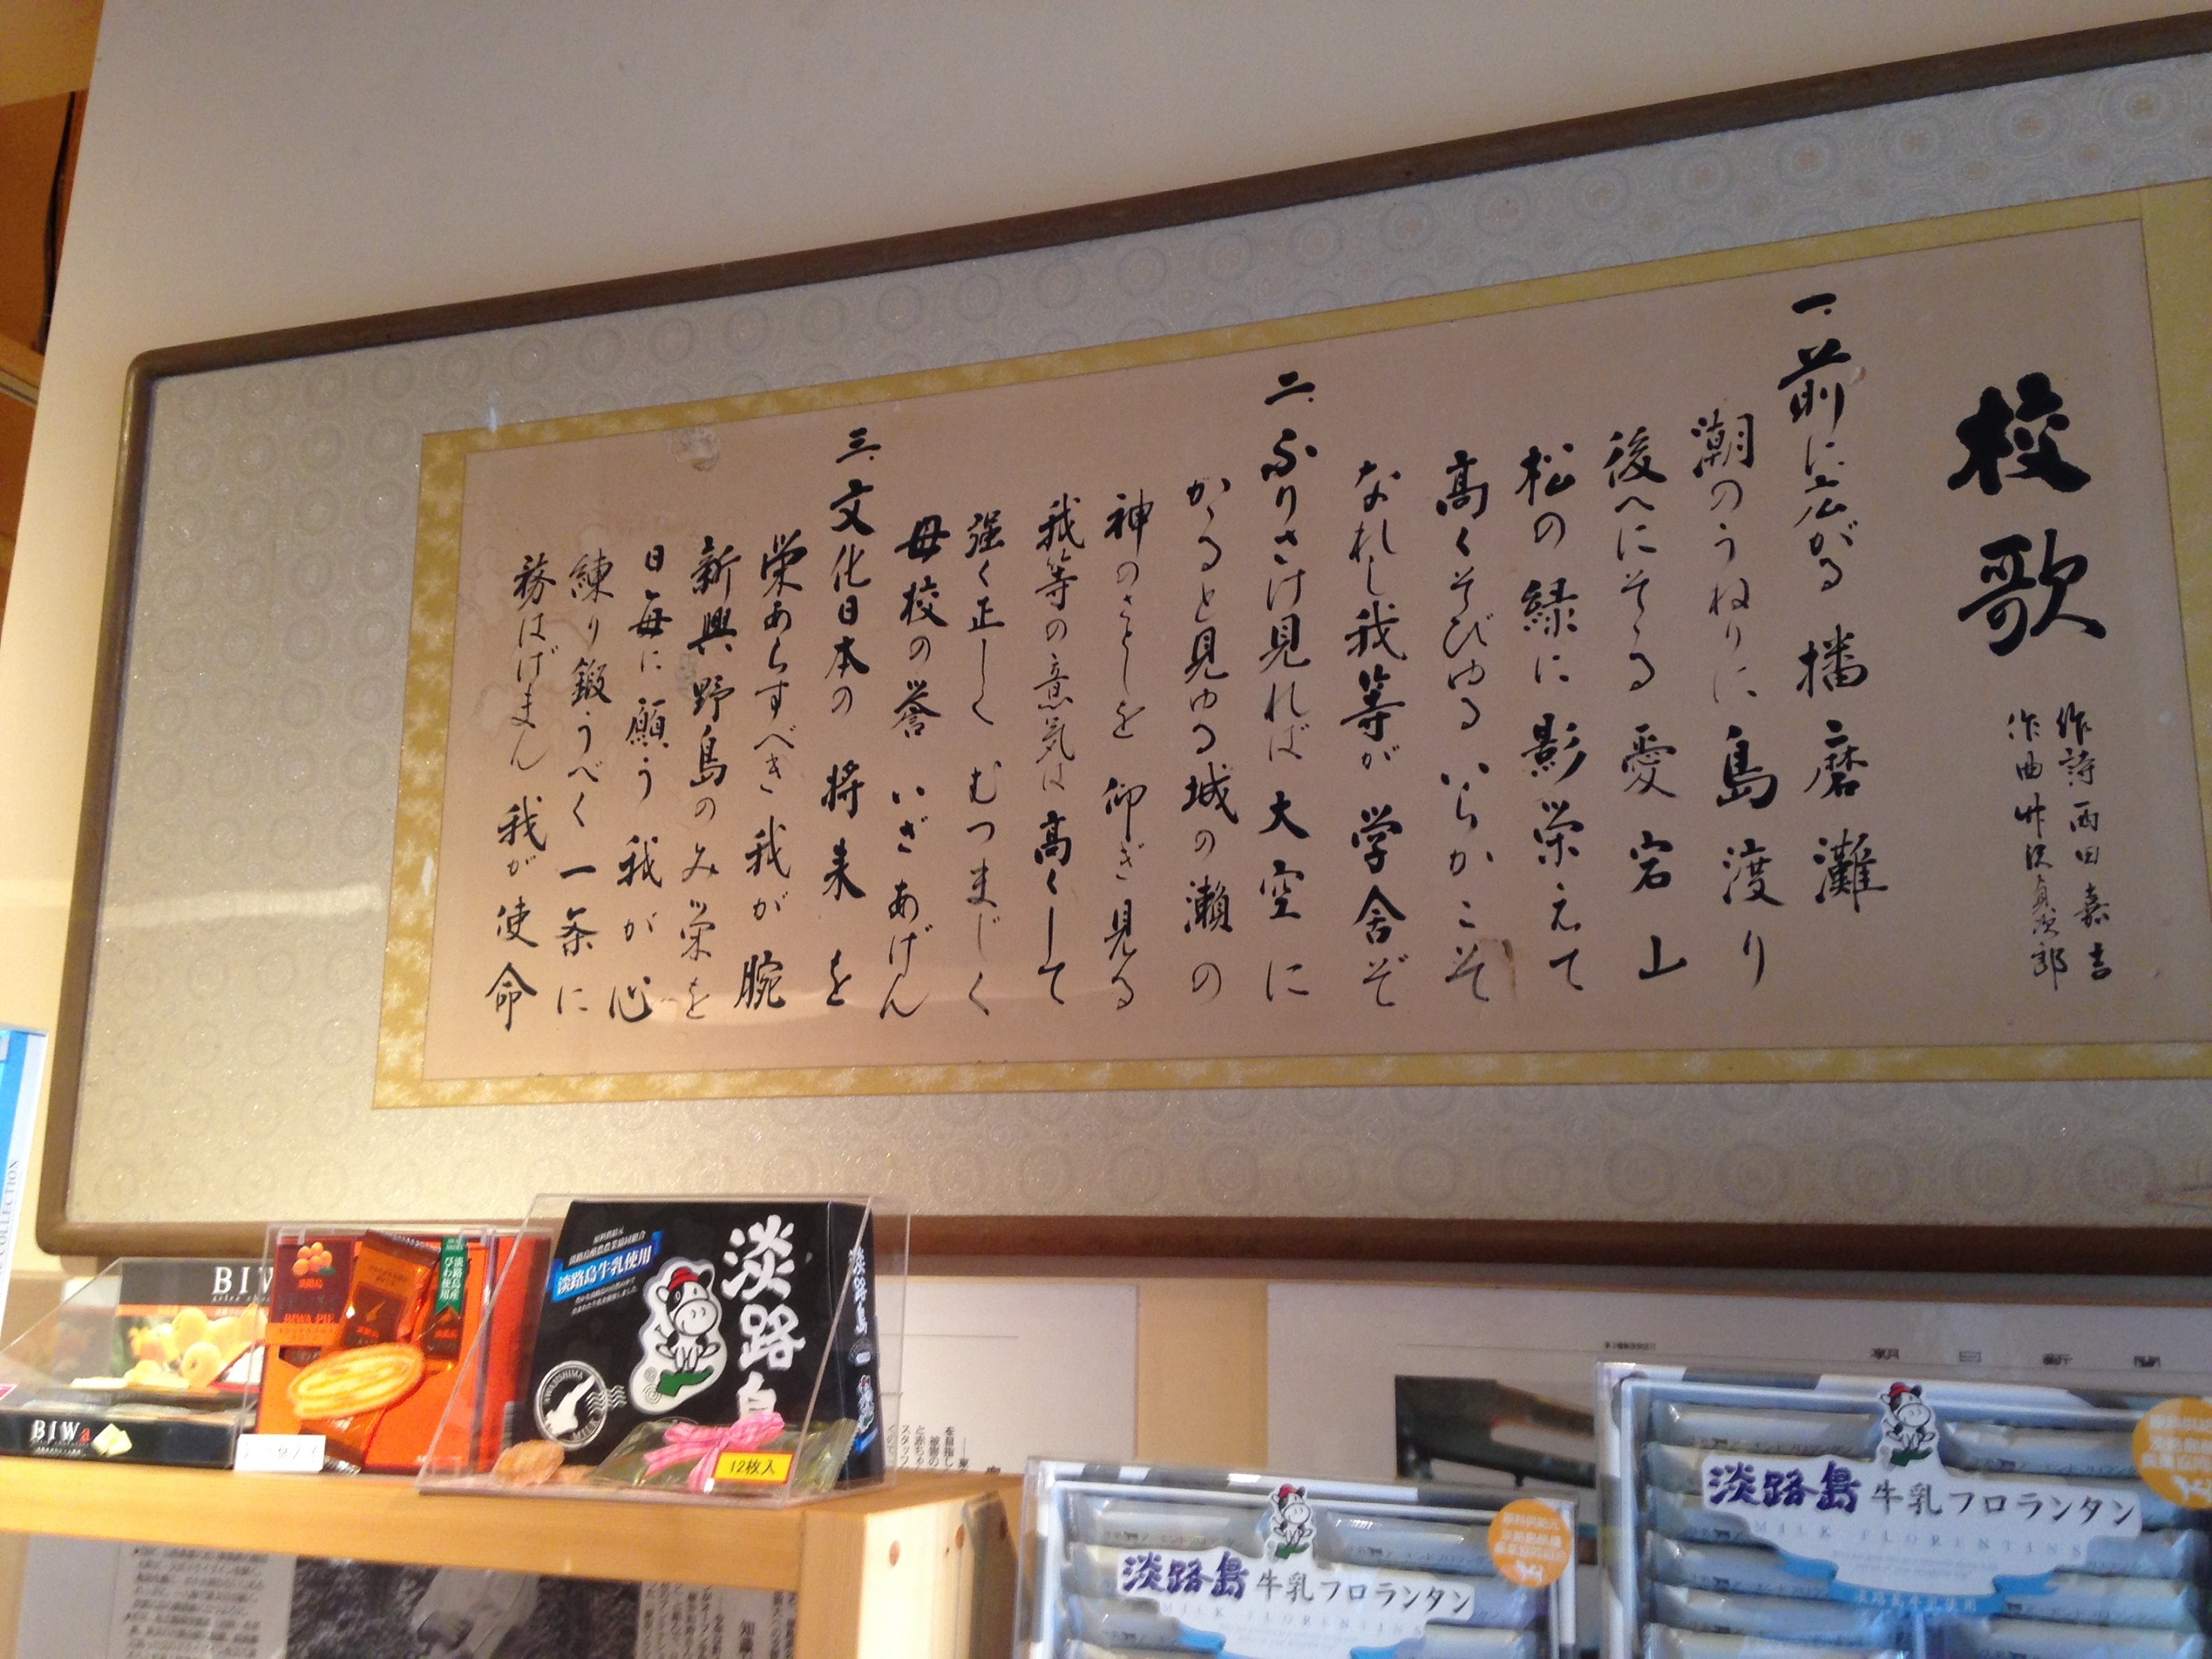 校歌
作詩 西田嘉吉
作曲 竹沢貞次郎
一.前に広がる 播磨灘
潮のうねりに 島渡り
後へにそゝる 愛宕山
松の緑に 影栄えて
高くそびゆる いらかこそ
なれし我等が 学舎ぞ
二.ふりさけ見れば 大空に
かゝると見ゆる 城の瀬の
神のさとしを 仰ぎ見る
我等の意気は 高くして
強く正しく むつまじく
母校の誉 いざあげん
三.文化日本の 将来を
栄あらすべき 我が腕
新興野島の み栄を
日毎に願う 我が心
練り鍛うべく 一条に
務はげまん 我が使命
BIW
BIWa
BIWA PIE
淡路島産
びわ使用
淡路島牛乳使用
淡路島
AWAJISHIMA
MILK
12枚入
COLLECTION
朝日新聞
淡路島 牛乳フロランタン
MILK FLORENTINS
淡路島 牛乳フロランタン
MILK FLORENTINS